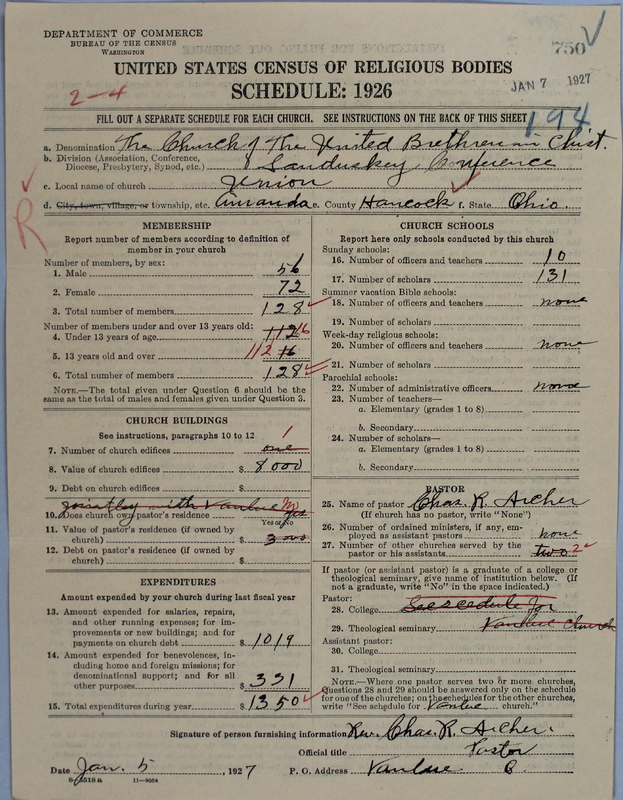 DEPARTMENT OF COMMERCE
BUREAU OF THE CENSUS
WASHINGTON
750
UNITED STATES CENSUS OF RELIGIOUS BODIES
JAN 7 1927
SCHEDULE: 1926
2-4
FILL OUT A SEPARATE SCHEDULE FOR EACH CHURCH. SEE INSTRUCTIONS ON THE BACK OF THIS SHEET
194
a. Denomination The Church of The United Brethren in Christ.
b. Division (Association, Conference, Diocese, Presbytery, Synod, etc.) Sanduskey Conference
c. Local name of church Union
d. City, town, village, or township, etc. Amanda e. County Hancock f. State Ohio.
R
MEMBERSHIP
Report number of members according to definition of member in your church
Number of members, by sex:
1. Male 56
2. Female 72
3. Total number of members 128
Number of members under and over 13 years old:
4. Under 13 years of age 112 16
5. 13 years old and over 112 16
6. Total number of members 128
NOTE.—The total given under Question 6 should be the same as the total of males and females given under Question 3.
CHURCH BUILDINGS
See instructions, paragraphs 10 to 12
7. Number of church edifices one 1
8. Value of church edifices $ 8000
9. Debt on church edifices $
jointley with Vanlue No
10. Does church own pastor's residence Yes
Yes or No
11. Value of pastor's residence (if owned by church) $ 3000
12. Debt on pastor's residence (if owned by church) $
EXPENDITURES
Amount expended by your church during last fiscal year
13. Amount expended for salaries, repairs, and other running expenses; for improvements or new buildings; and for payments on church debt $ 1019
14. Amount expended for benevolences, including home and foreign missions; for denominational support; and for all other purposes $ 331
15. Total expenditures during year $ 1350
CHURCH SCHOOLS
Report here only schools conducted by this church
Sunday schools:
16. Number of officers and teachers 10
17. Number of scholars 131
Summer vacation Bible schools:
18. Number of officers and teachers none
19. Number of scholars
Week-day religious schools:
20. Number of officers and teachers none
21. Number of scholars
Parochial schools:
22. Number of administrative officers none
23. Number of teachers—
a. Elementary (grades 1 to 8)
b. Secondary
24. Number of scholars—
a. Elementary (grades 1 to 8)
b. Secondary
PASTOR
25. Name of pastor Chas. R. Archer
(If church has no pastor, write "None")
26. Number of ordained ministers, if any, employed as assistant pastors none
27. Number of other churches served by the pastor or his assistants two 2
If pastor (or assistant pastor) is a graduate of a college or theological seminary, give name of institution below. (If not a graduate, write "No" in the space indicated.)
Pastor:
28. College See scedule for
29. Theological seminary Vanlue Church
Assistant pastor:
30. College
31. Theological seminary
NOTE.—Where one pastor serves two or more churches, Questions 28 and 29 should be answered only on the schedule for one of the churches; on the schedules for the other churches, write "See schedule for Vanlue church."
Signature of person furnishing information Rev. Chas. R. Archer.
Official title Pastor
Date Jan. 5, 1927 P. O. Address Vanlue O.
11—9654